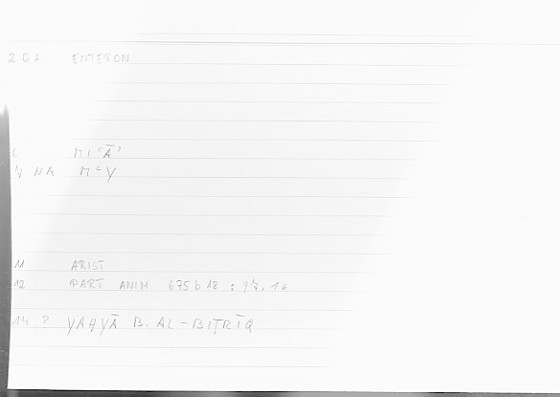 ENTERON
6 MIʿĀʾ
NR MʿY
11 ARIST
12 PART ANIM 675 b 18 :
14 2 YAḤYĀ B. AL-BIṬRĪQ